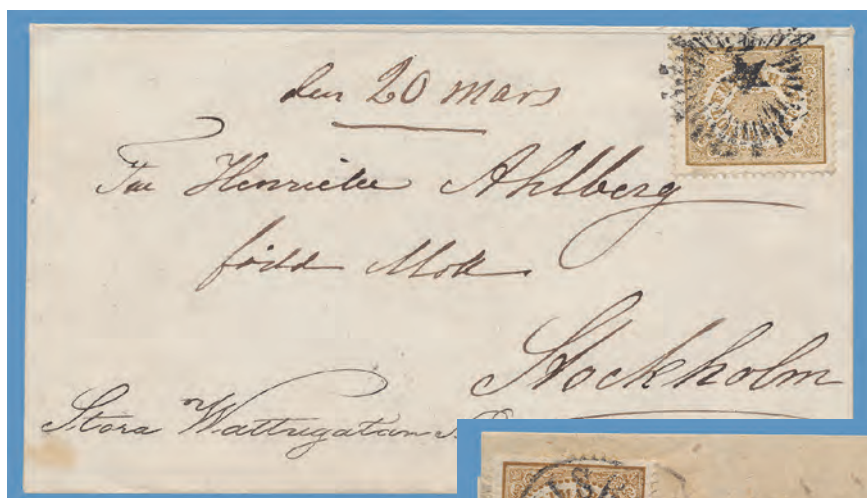 den 20 mars
Fru Henriette Ahlberg
född Moll
Stockholm
Stora Wattugatan